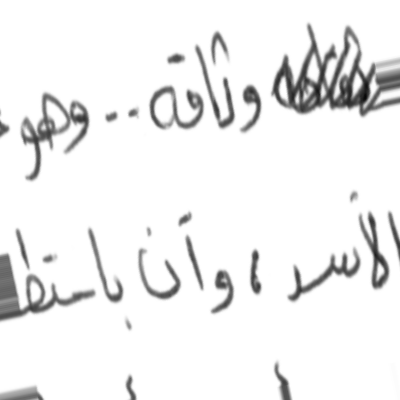 وثاقه .. وهو
الأسد ، وأن باستطا